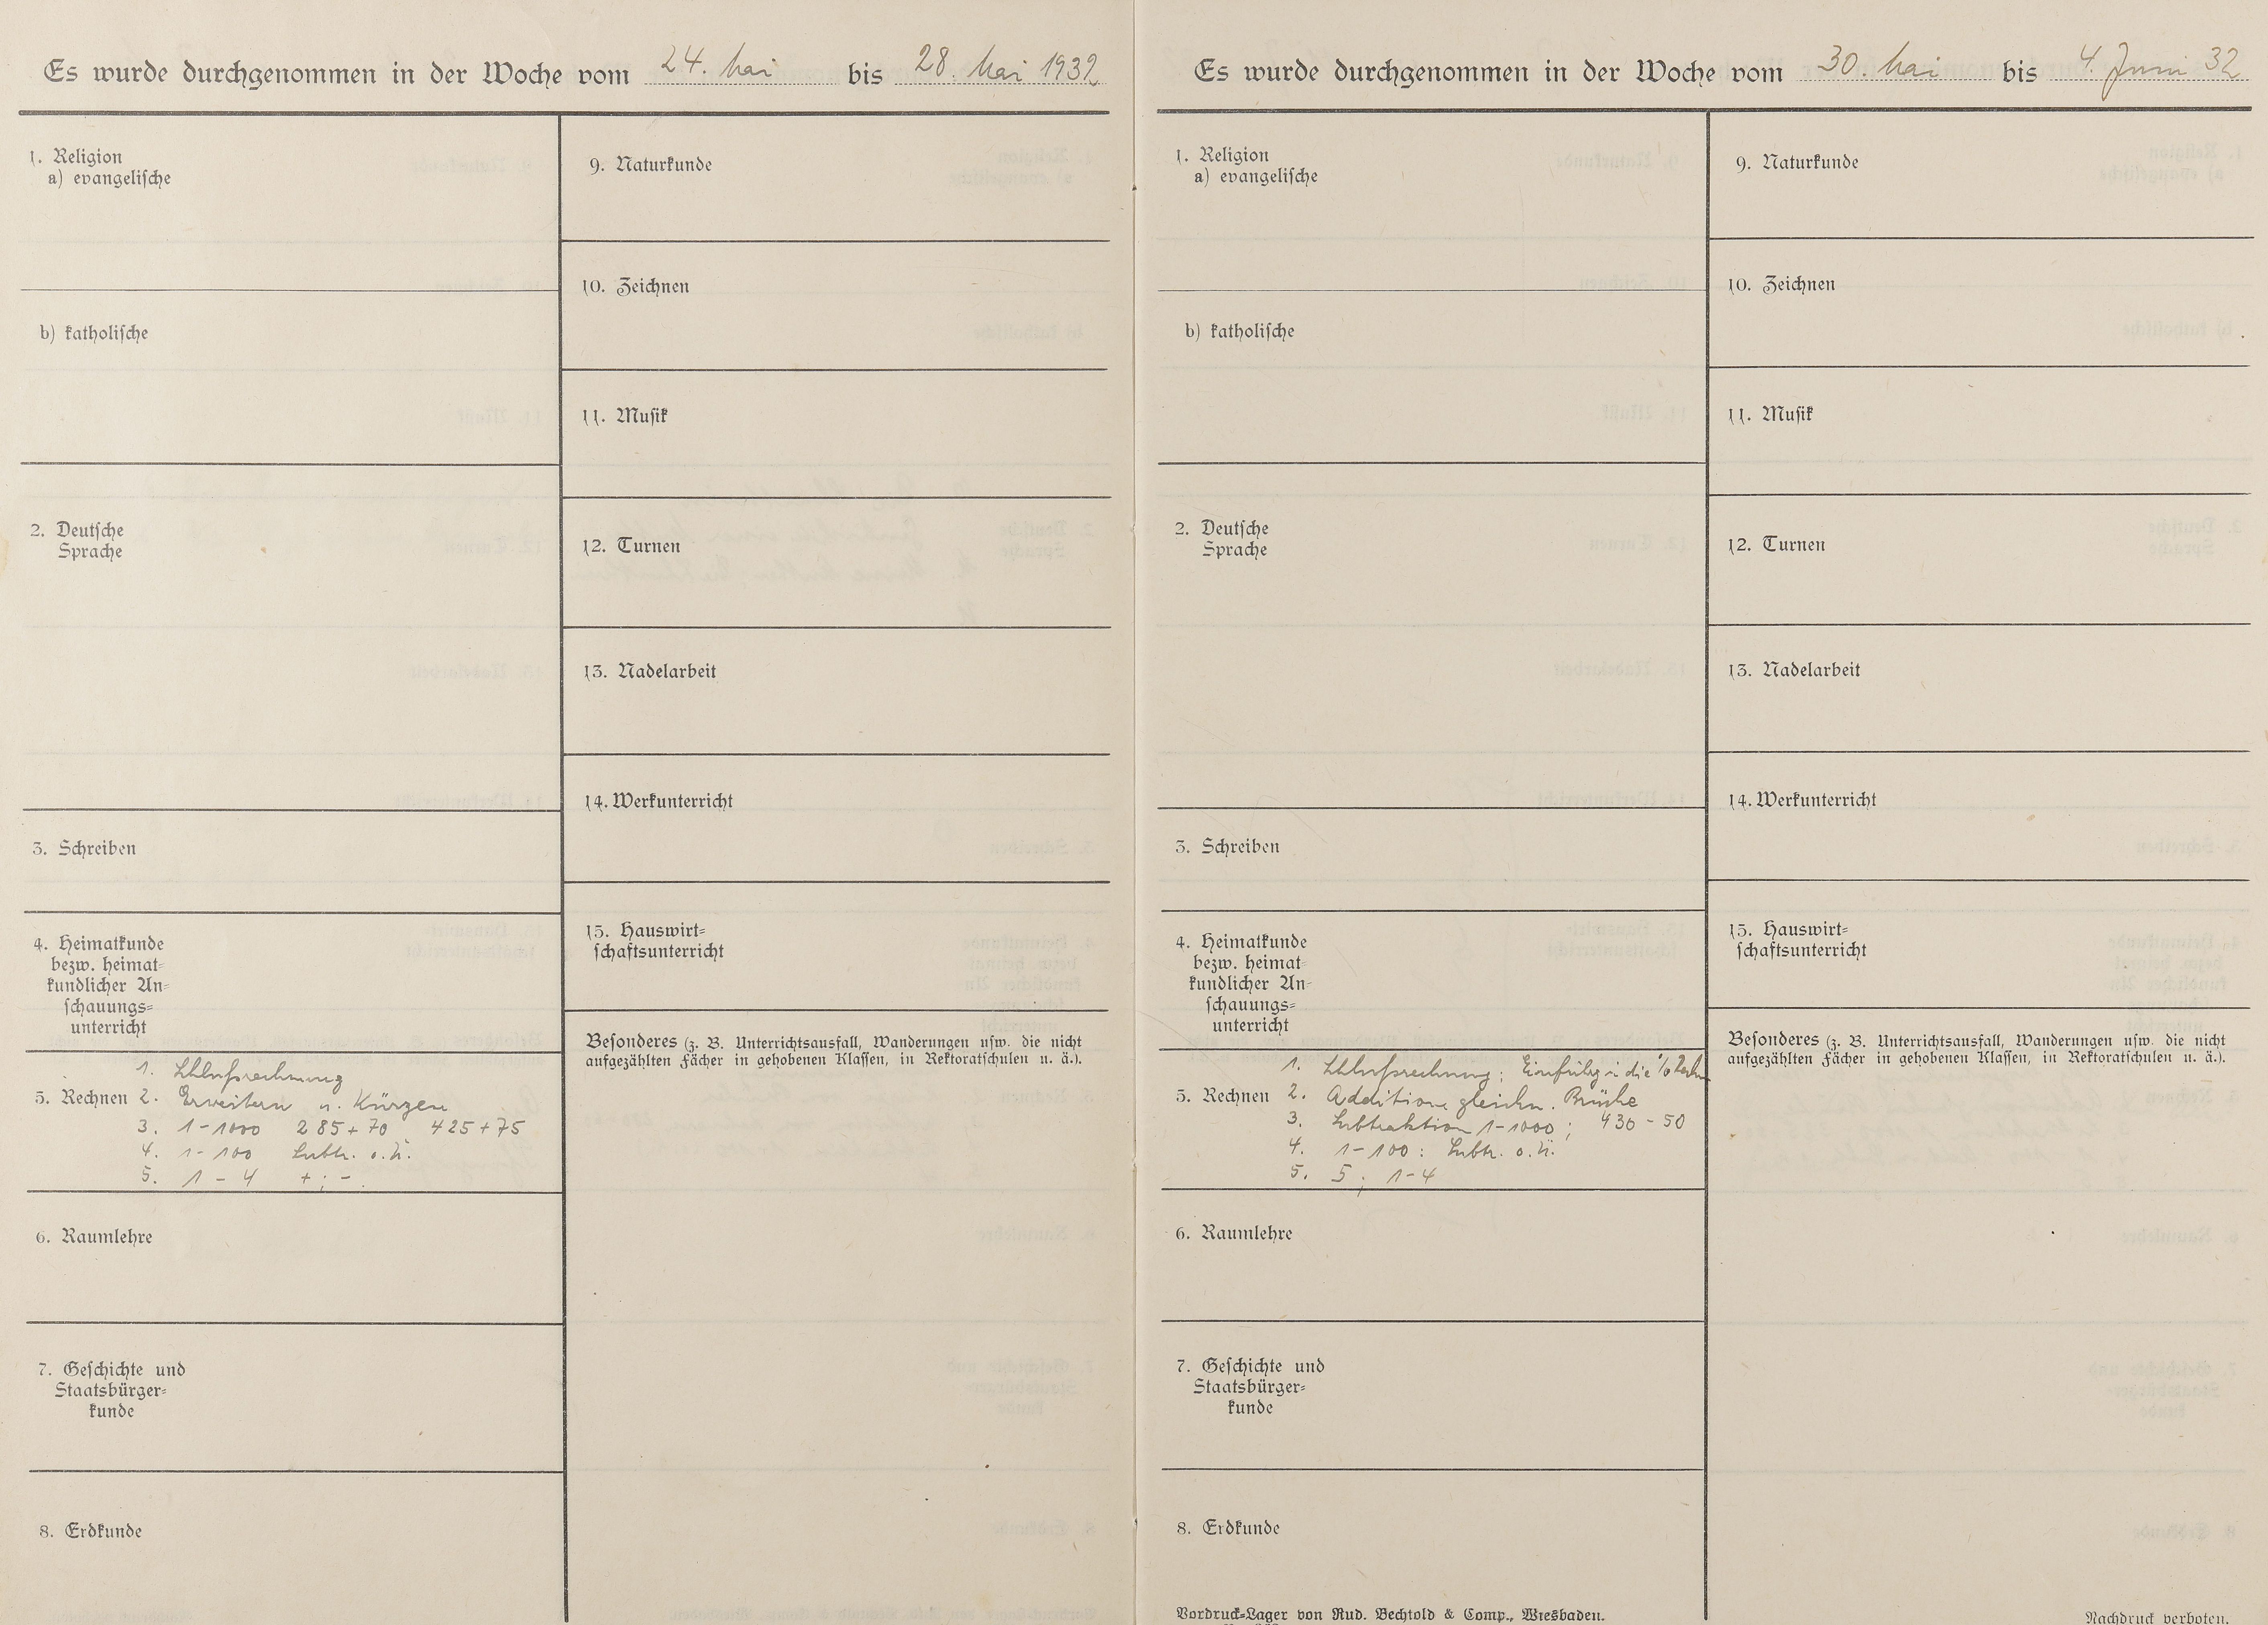 Es wurde durchgenommen in der Woche vom 24. Mai bis 28. Mai 1932
1. Religion
a) evangelische
b) katholische
2. Deutsche
Sprache
3. Schreiben
4. Heimatkunde
bezw. heimat-
kundlicher An-
schauungs-
unterricht
5. Rechnen
1. Schlußrechnung
2. Erweitern u. Kürzen
3. 1-1000 285+70 425+75
4. 1-100 Subtr. o. Ü.
5. 1-4 +; -.
6. Raumlehre
7. Geschichte und
Staatsbürger-
kunde
8. Erdkunde
9. Naturkunde
10. Zeichnen
11. Musik
12. Turnen
13. Nadelarbeit
14. Werkunterricht
15. Hauswirt-
schaftsunterricht
Besonderes (z. B. Unterrichtsausfall, Wanderungen usw. die nicht
aufgezählten Fächer in gehobenen Klassen, in Rektoratschulen u. ä.).
Es wurde durchgenommen in der Woche vom 30. Mai bis 4. Juni 32
1. Religion
a) evangelische
b) katholische
2. Deutsche
Sprache
3. Schreiben
4. Heimatkunde
bezw. heimat-
kundlicher An-
schauungs-
unterricht
5. Rechnen
1. Schlußrechnung; Einführg i die %
2. Addition gleichn. Brüche
3. Subtraktion 1-1000; 430-50
4. 1-100: Subtr. o. Ü.
5. 5; 1-4
6. Raumlehre
7. Geschichte und
Staatsbürger-
kunde
8. Erdkunde
9. Naturkunde
10. Zeichnen
11. Musik
12. Turnen
13. Nadelarbeit
14. Werkunterricht
15. Hauswirt-
schaftsunterricht
Besonderes (z. B. Unterrichtsausfall, Wanderungen usw. die nicht
aufgezählten Fächer in gehobenen Klassen, in Rektoratschulen u. ä.).
Vordruck-Lager von Rud. Bechtold & Comp., Wiesbaden.
Nachdruck verboten.